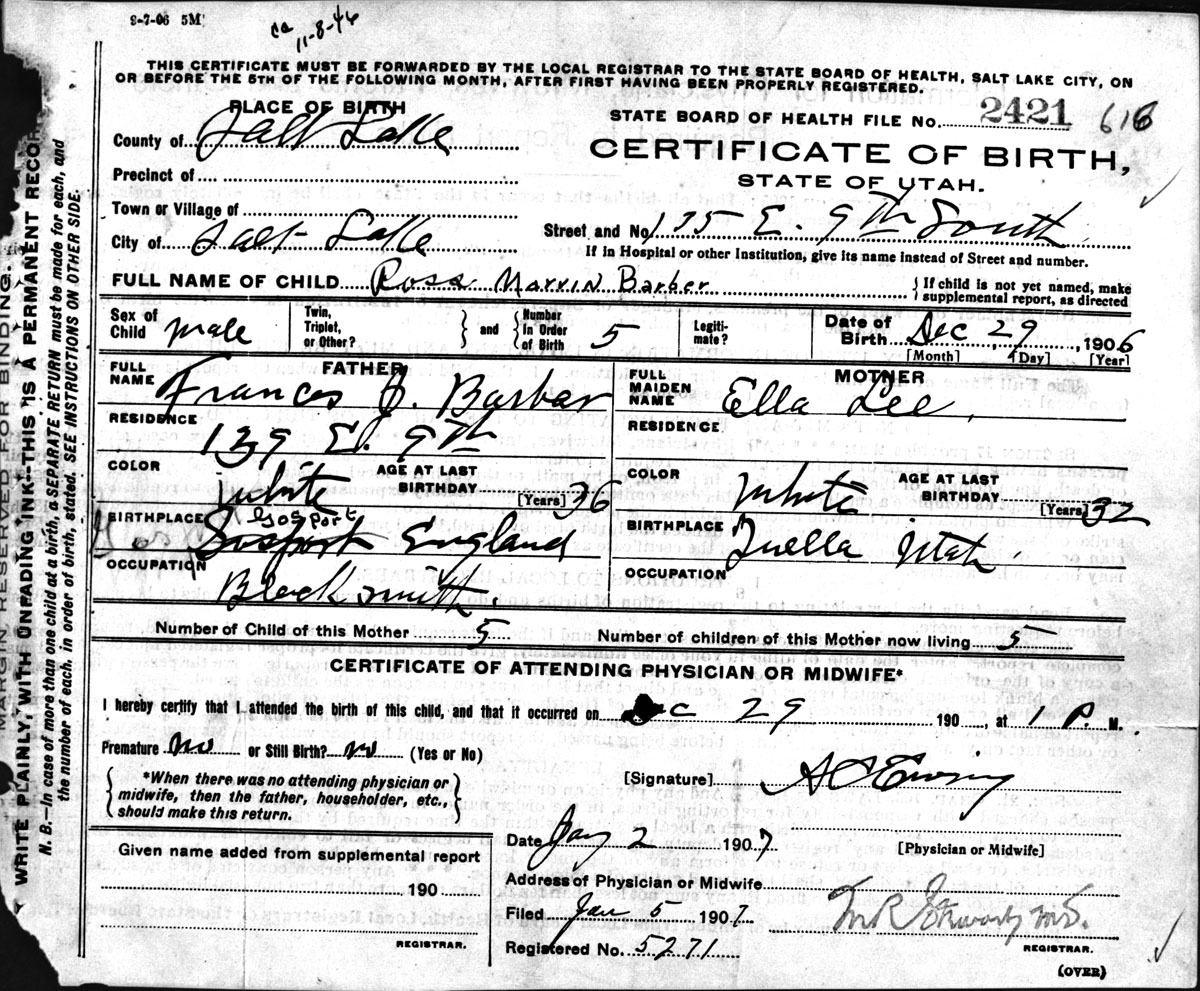 9-7-06 5M
ca
11-8-46
THIS CERTIFICATE MUST BE FORWARDED BY THE LOCAL REGISTRAR TO THE STATE BOARD OF HEALTH, SALT LAKE CITY, ON
OR BEFORE THE 5TH OF THE FOLLOWING MONTH, AFTER FIRST HAVING BEEN PROPERLY REGISTERED.
PLACE OF BIRTH
County of Salt Lake
Precinct of
Town or Village of
City of Salt Lake
STATE BOARD OF HEALTH FILE No. 2421 616
CERTIFICATE OF BIRTH,
STATE OF UTAH.
Street and No. 175 E. 9th South
If in Hospital or other Institution, give its name instead of Street and number.
FULL NAME OF CHILD Ross Marvin Barber
If child is not yet named, make
supplemental report, as directed
Sex of Child male
Twin, Triplet, or Other?
and
Number in Order of Birth 5
Legitimate?
Date of Birth Dec, 29, 1906
[Month] [Day] [Year]
FATHER
FULL NAME Frances J. Barbar
RESIDENCE 139 E. 9th
COLOR White
AGE AT LAST BIRTHDAY 36
[Years]
BIRTHPLACE Gosport
Gosport England
OCCUPATION Blecksmith.
MOTHER
FULL MAIDEN NAME Ella Lee,
RESIDENCE
COLOR White
AGE AT LAST BIRTHDAY 32
[Years]
BIRTHPLACE Tuella Utah.
OCCUPATION
Number of Child of this Mother 5
Number of children of this Mother now living 5
CERTIFICATE OF ATTENDING PHYSICIAN OR MIDWIFE*
I hereby certify that I attended the birth of this child, and that it occurred on Dec 29 190 , at 1 P. M.
Premature no or Still Birth? no (Yes or No)
*When there was no attending physician or
midwife, then the father, householder, etc.,
should make this return.
[Signature] A C Ewing
Date Jany 2 1907
[Physician or Midwife]
Given name added from supplemental report
190
REGISTRAR.
Address of Physician or Midwife
Filed Jan 5 1907
Registered No. 5271
REGISTRAR.
(OVER)
MARGIN RESERVED FOR BINDING.
WRITE PLAINLY, WITH UNFADING INK—THIS IS A PERMANENT RECOR
N. B.—In case of more than one child at a birth, a SEPARATE RETURN must be made for each, and
the number of each, in order of birth, stated. SEE INSTRUCTIONS ON OTHER SIDE.